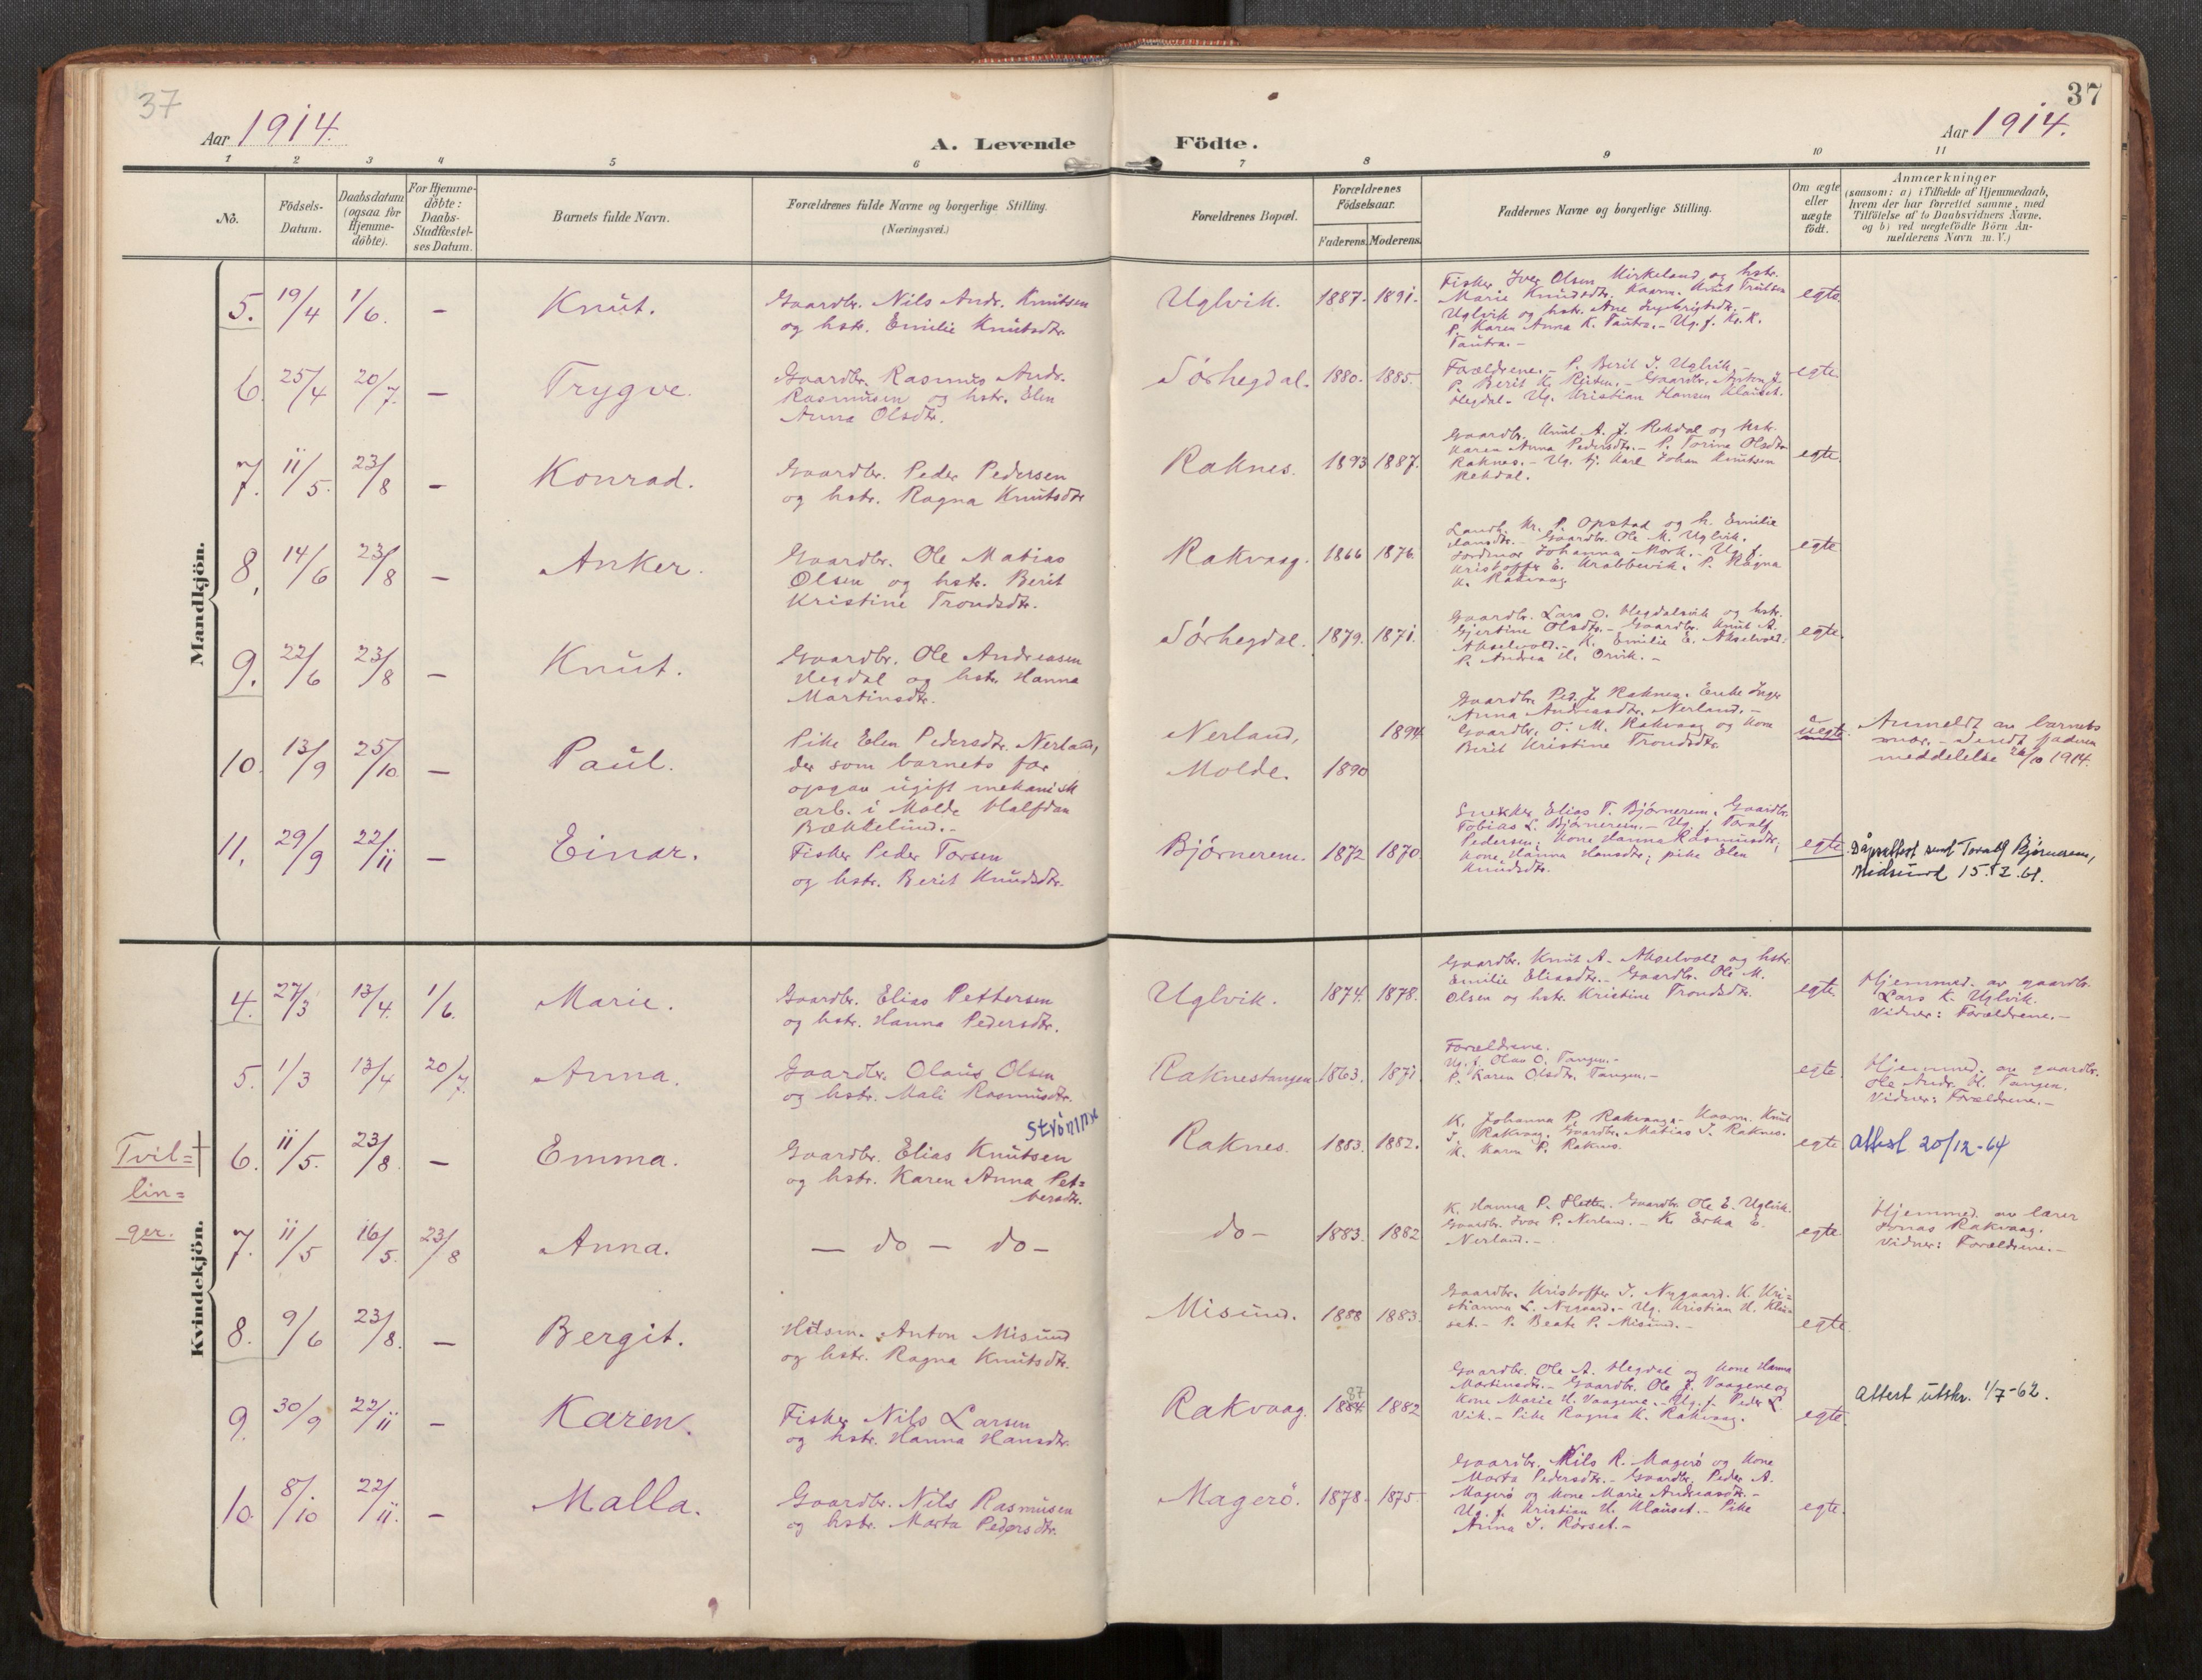 37
Aar 1914.
A. Levende
Födte.
37
Aar 1914.
1 2 3 4 5 6 7 8 9 10 11
No.
Födsels-
Datum.
Daabsdatum
(ogsaa for
Hjemme-
döbte).
For Hjemme-
döbte:
Daabs-
Stadfæstel-
ses Datum.
Barnets fulde Navn.
Forældrenes fulde Navne og borgerlige Stilling.
(Næringsvei.)
Forældrenes Bopæl.
Forældrenes
Födselsaar.
Faderens. Moderens.
Faddernes Navne og borgerlige Stilling.
Om ægte
eller
uægte
födt.
Anmærkninger
(saasom: a) i Tilfælde af Hjemmedaab,
hvem der har forrettet samme, med
Tilföielse af to Daabsvidners Navne,
og b) ved uægtefödte Börn An-
melderens Navn m. V.)
Mandkjön.
5. 19/4 1/6. – Knut.
Gaardbr. Nils Andr. Knutsen
og hstr. Emilie Knutsdtr.
Uglvik. 1887. 1891.
Fisker Iver Olsen Mirkeland og hstr.
Marie Knudsdtr. Kaarm. Knut Trulsen
Uglvik og hstr. Ane Ingebrigtsdtr. –
P. Karen Anna K. Tautra. – Ug. f. Kr. K.
Tautra. –
egte.
6. 25/4 20/7. – Trygve.
Gaardbr. Rasmus Andr.
Rasmussen og hstr. Elen
Anna Olsdtr.
Sørhegdal. 1880. 1885.
Forældrene. – P. Berit J. Uglvik. –
P. Berit K. – Gaardbr. Anton J.
Hegdal. Ug. Kristian Hansen Klauset.
egte.
7. 11/5. 23/8 – Konrad.
Gaardbr. Peder Pedersen
og hstr. Ragna Knutsdtr
Raknes. 1893 1887.
Gaardbr. Knut A. J. Rekdal og hstr.
Karen Anna Pedersdtr. – P. Torine Olsdtr
Raknes. – Ug. kj. Karl Johan Knutsen
Rekdal.
egte.
8, 14/6 23/8 – Anker.
Gaardbr. Ole Matias
Olsen og hstr. Berit
Kristine Trondsdtr.
Rakvaag. 1866 1876.
Landh. Kr. P. Opstad og h. Emilie
Hansdtr. – Gaardbr. Ole M. Uglvik.
Jordmor Johanna Mork. – Ug. f.
Kristoffer E. Krabbevik. P. Ragna
K. Rakvaag
egte
9. 22/6 23/8 – Knut.
Gaardbr. Ole Andreasen
Hegdal og hstr. Hanna
Martinsdtr.
Sørhegdal. 1879. 1871.
Gaardbr. Lars O. Hegdalsvik og hstr.
Gjertine Olsdtr. – Gaardbr. Knut A.
Akselvold. – K. Emilie E. Akselvold.
P. Andrea H. Orvik. –
egte.
10. 13/9 25/10. – Paul.
Pike Elen Pedersdtr. Nerland,
der som barnets far
opgav ugift mekanisk
arb. i Molde Halfdan
Bækkelund. –
Nerland, 1894
Molde. 1890
Gaardbr. Ped. J. Raknes. Enke Inger
Anna Andreasdtr. Nerland. –
Gaardbr. O. M. Rakvaag og kone
Berit Kristine Trondsdtr.
uegte.
Anmeldt av barnets
mor. – Sendt faderen
meddelelse 26/10 1914.
11. 29/9 22/11 – Einar.
Fisker Peder Torsen
og hstr. Berit Knudsdtr.
Bjørnerem. 1872 1870.
Snekker Elias T. Bjørnerem. Gaardbr.
Tobias L. Bjørnerem. – Ug. f. Toralf
Pedersen; Kone Hanna Rasmusdtr;
Kone Hanna Hansdtr; pike Elen
Knudsdtr.
egte.
Dåpsattest sendt Toralf Bjørnerem,
Midsund 15.12.61.
Kvindekjön.
4. 27/3 13/4. 1/6. Marie.
Gaardbr. Elias Pettersen
og hstr. Hanna Pedersdtr.
Uglvik. 1874. 1878.
Gaardbr. Knut A. Akselvold og hstr.
Emilie Eliasdtr. – Gaardbr. Ole M.
Olsen og hstr. Kristine Trondsdtr.
egte
Hjemmed. av gaardbr.
Lars K. Uglvik.
Vidner: Forældrene. –
5. 1/3 13/4 20/7. Anna.
Gaardbr. Olaus Olsen
og hstr. Mali Rasmusdtr.
Raknestangen 1863. 1871.
Forældrene.
Ug. f. Olav O. Tangen. –
P. Karen Olsdtr. Tangen. –
egte.
Hjemmed. av gaardbr.
Ole Andr. H. Tangen.
Vidner: Forældrene. –
Tvil=
lin=
ger.
6. 11/5. 23/8. – Emma.
Strømme
Gaardbr. Elias Knutsen
og hstr. Karen Anna Pet=
tersdtr.
Raknes. 1883. 1882.
K. Johanna P. Rakvaag. – Kaarm. Knut
J. Rakvaag. Gaardbr. Matias J. Raknes.
K. Karen P. Raknes.
egte
Attest 20/12-64
7. 11/5 16/5. 23/8 Anna.
– do – do –
do – 1883. 1882
K. Hanna P. Sletten. Gaardbr. Ole E. Uglvik.
Gaardbr. Ivar P. Nerland. – K. Erka E.
Nerland. –
egte.
Hjemmed. av lærer
Jonas Rakvaag.
Vidner: Forældrene. –
8. 9/6 23/8. – Bergit.
Anton Misund
og hstr. Ragna Knutsdtr.
Misund. 1888 1883.
Gaardbr. Kristoffer J. Nygaard. K. Kri=
stianna L. Nygaard. – Ug. Kristian H. Klau
set. – P. Beate P. Misund. –
egte.
9. 30/9 22/11 – Karen.
Fisker Nils Larsen
og hstr. Hanna Hansdtr.
Rakvaag. 1884 87 1882
Gaardbr. Ole A. Hegdal og kone Hanna
Martinsdtr. – Gaardbr. Ole J. Vaagene og
kone Marie H. Vaagene. – Ug. f. Peder L.
Vik. – Pike Ragna K. Rakvaag.
egte.
Attest utskr. 1/7-62.
10. 8/10 22/11. – Malla.
Gaardbr. Nils Rasmusen
og hstr. Marta Pedersdtr.
Magerö. 1878. 1875.
Gaardbr. Nils R. Magerö og kone
Marta Pedersdtr. – Gaardbr. Peder A.
Magerö og kone Marie Andreasdtr. –
Ug. f. Kristian H. Klauset. – Pike
Anna J. Rørset. –
egte.